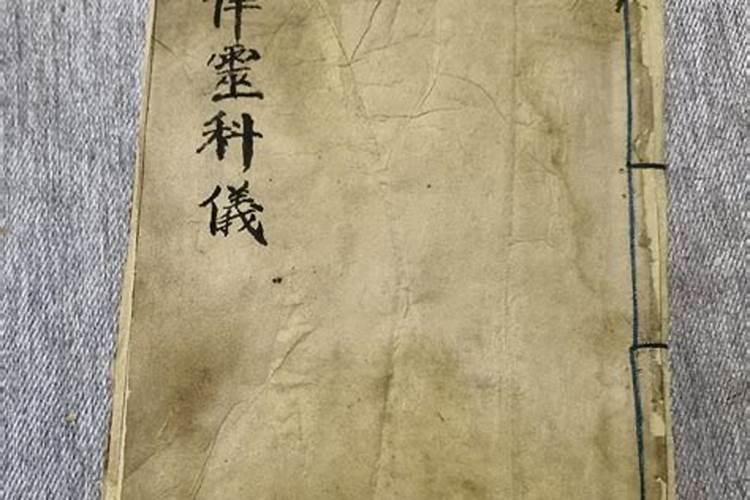 靈科儀